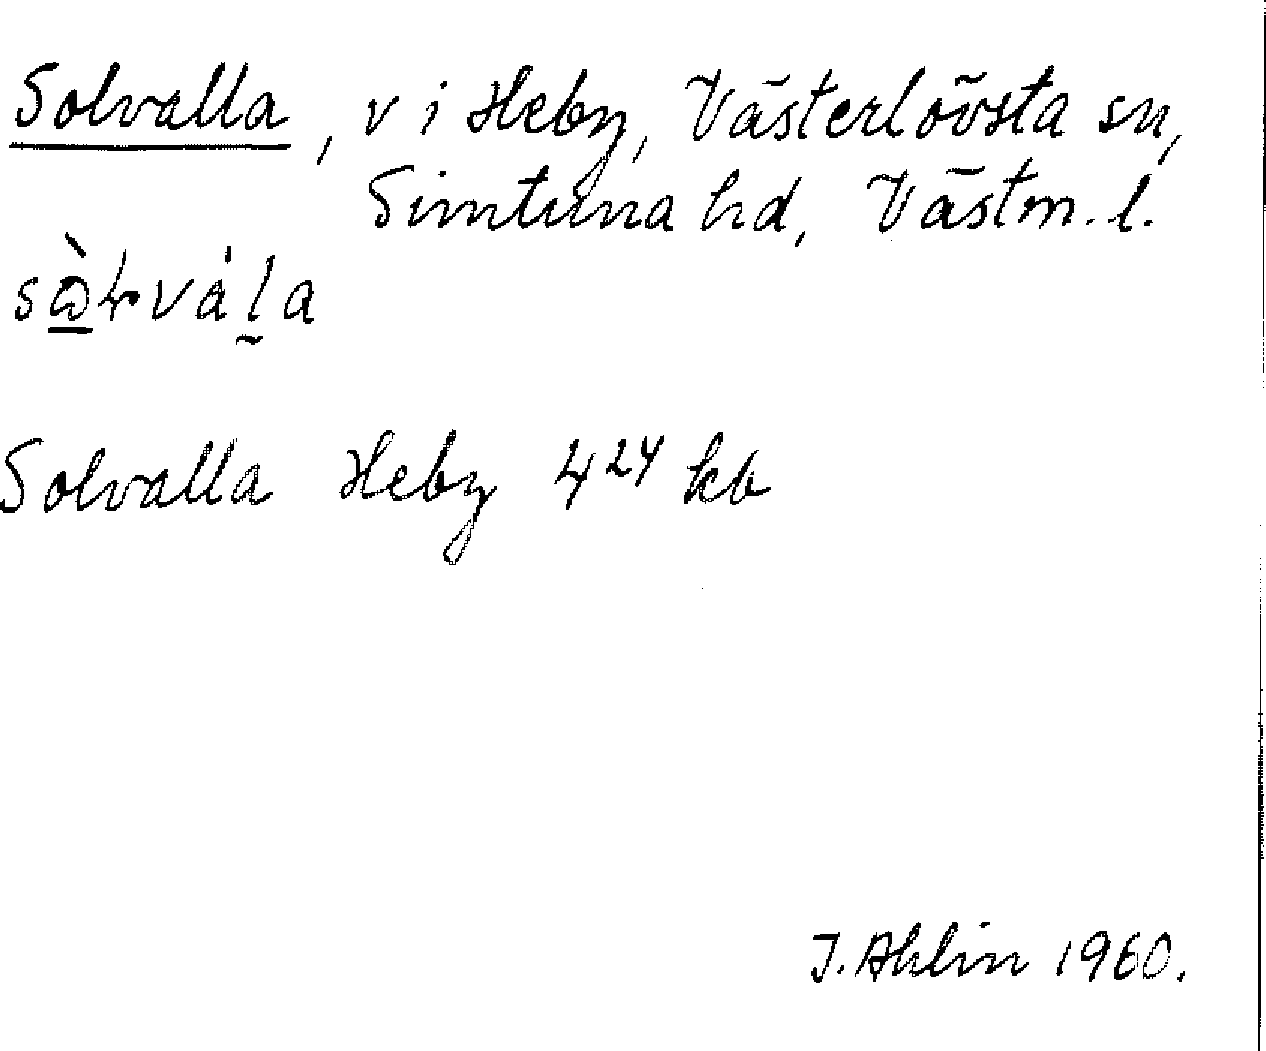 Solvalla, v i Heby, Västerlövsta sn,
Simtuna hd, Västm. l.
Solvalla Heby 4²⁴ kb
J. Ahlin 1960.